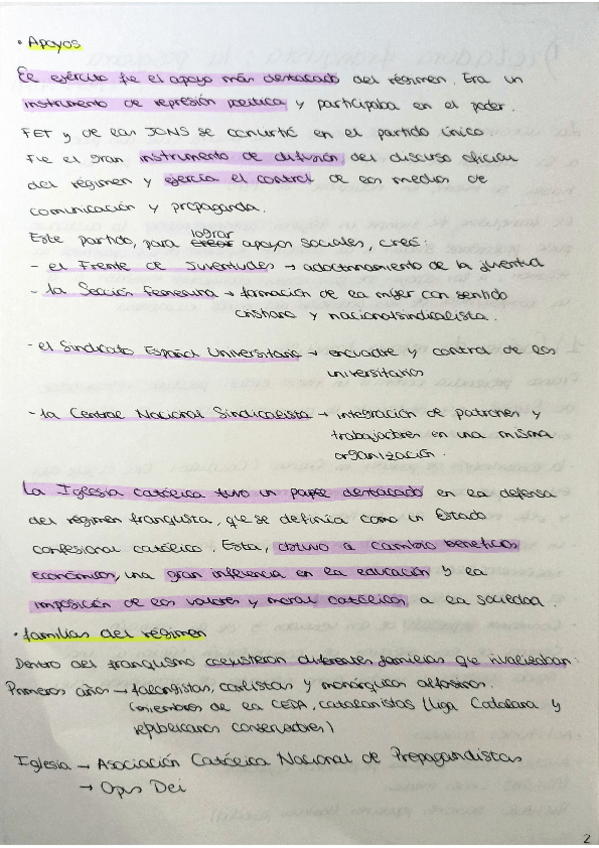 • Apoyos
El ejército fue el apoyo más destacado del régimen. Era un
instrumento de represión política y participaba en el poder.
FET y de las JONS se convirtió en el partido único
Fue el gran instrumento de difusión del discurso oficial
del régimen y ejercía el control de los medios de
comunicación y propaganda.
Este partido, para crear lograr apoyos sociales, creó:
- el Frente de Juventudes → adoctrinamiento de la juventud
- la Sección Femenina → formación de la mujer con sentido
cristiano y nacionalsindicalista.
- el Sindicato Español Universitario → encuadre y control de los
universitarios
- la Central Nacional Sindicalista → integración de patrones y
trabajadores en una misma
organización.
La Iglesia católica tuvo un papel destacado en la defensa
del régimen franquista, que se definía como un Estado
confesional católico. Esta, obtuvo a cambio beneficios
económicos, una gran influencia en la educación y la
imposición de los valores y moral católicos a la sociedad.
• familias del régimen
Dentro del franquismo coexistieron diferentes familias que rivalizaban:
Primeros años → falangistas, carlistas y monárquicos alfonsinos.
(miembros de la CEDA, catalanistas Lliga Catalana y
republicanos conservadores)
Iglesia → Asociación Católica Nacional de Propagandistas
→ Opus Dei
2